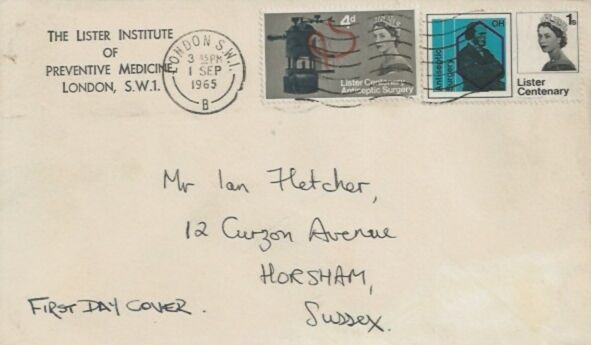 THE LISTER INSTITUTE
OF
PREVENTIVE MEDICINE
LONDON, S.W.1.
LONDON S.W.1.
3 45 PM
1 SEP
1965
B
4d
Lister Centenary
Antiseptic Surgery
OH
Antiseptic
Surgery
1s
Lister
Centenary
Mr Ian Fletcher,
12 Curzon Avenue
HORSHAM,
Sussex.
FIRST DAY COVER.